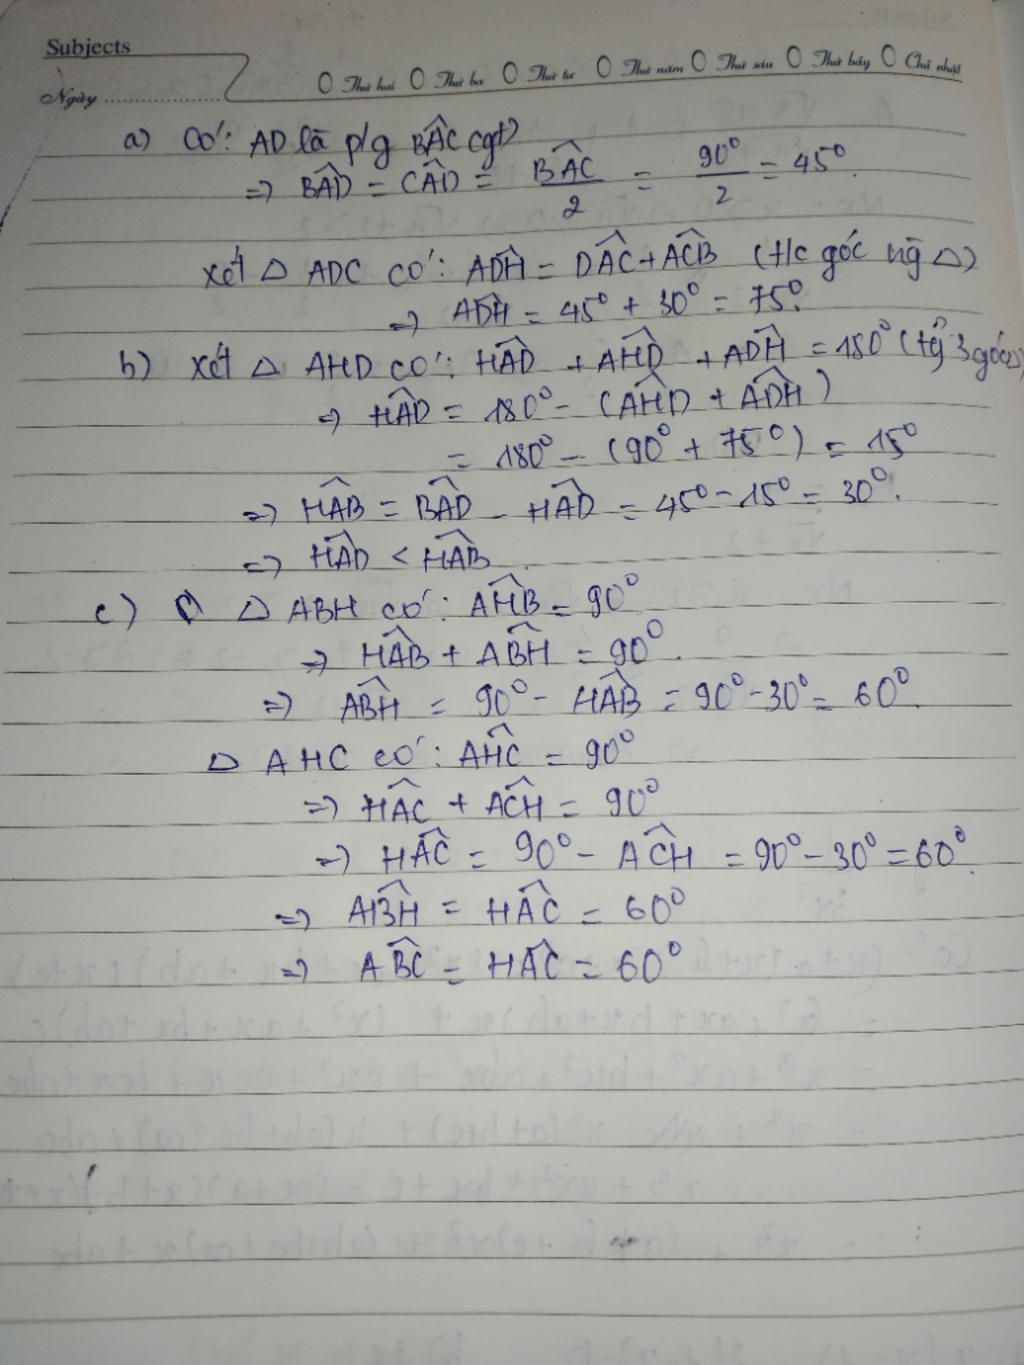 Subjects
Ngày ..................... Thứ hai Thứ ba Thứ tư Thứ năm Thứ sáu Thứ bảy Chủ nhật
a) Có: AD là p/g BÂC (gt)
=> BÂD = CÂD = BÂC/2 = 90°/2 = 45°.
Xét △ ADC có: AD̂H = DÂC + AĈB (t/c góc ng △)
=> AD̂H = 45° + 30° = 75°.
b) Xét △ AHD có: HÂD + AĤD + AD̂H = 180° (tg 3 góc)
=> HÂD = 180° - (AĤD + AD̂H)
= 180° - (90° + 75°) = 15°
=> HÂB = BÂD - HÂD = 45° - 15° = 30°.
=> HÂD < HÂB.
c) △ ABH có: AĤB = 90°
=> HÂB + AB̂H = 90°.
=> AB̂H = 90° - HÂB = 90° - 30° = 60°.
△ AHC có: AĤC = 90°
=> HÂC + AĈH = 90°
=> HÂC = 90° - AĈH = 90° - 30° = 60°.
=> AB̂H = HÂC = 60°
=> AB̂C = HÂC = 60°